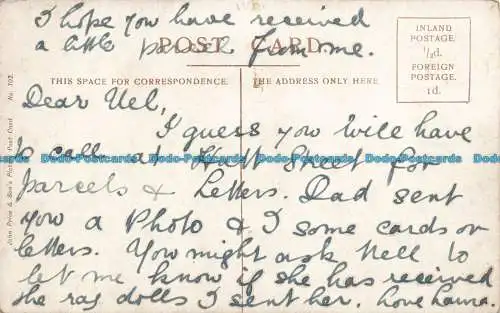 I hope you have received
a little parcel from me.
POST CARD.
THIS SPACE FOR CORRESPONDENCE.
THE ADDRESS ONLY HERE.
INLAND
POSTAGE.
½d.
FOREIGN
POSTAGE.
1d.
Dear Nel,
I guess you will have
to call at Hutt Street for
parcels & Letters. Dad sent
you a Photo & I some cards or
letters. You might ask Nell to
let me know if she has received
the rag dolls I sent her. love Laura.
John Price & Son's Post Card No. 102.
Dodo-Postcards Dodo-Postcards Dodo-Postcards Dodo-Postcards Dodo-Postcards Dodo-Postcards